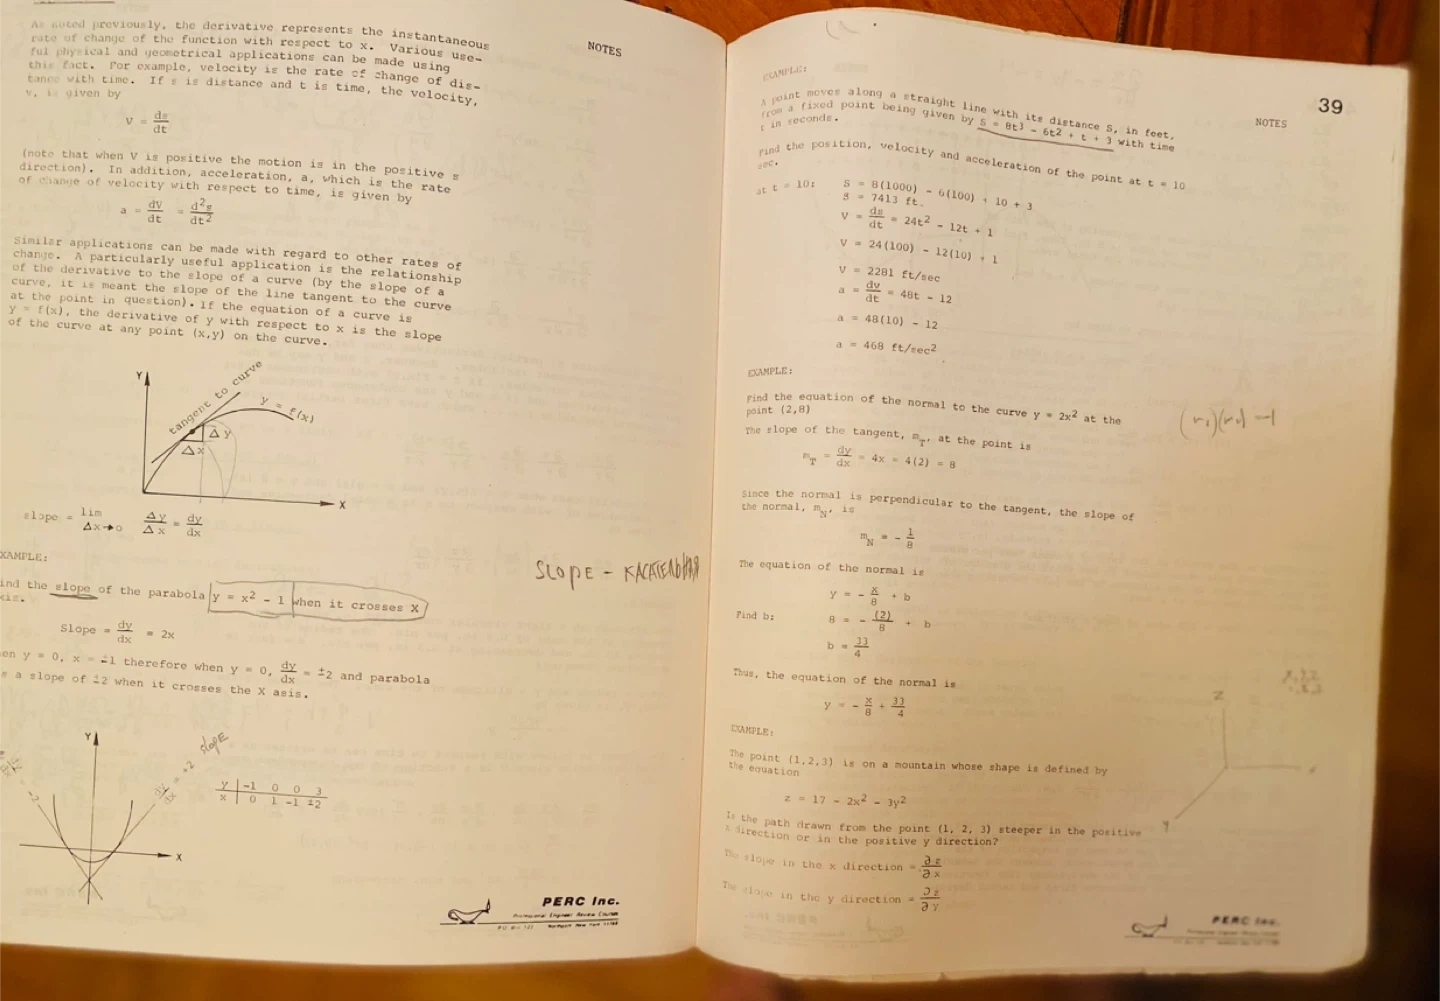 As noted previously, the derivative represents the instantaneous
rate of change of the function with respect to x. Various use-
ful physical and geometrical applications can be made using
this fact. For example, velocity is the rate of change of dis-
tance with time. If s is distance and t is time, the velocity,
v, is given by
NOTES
V = ds/dt
(note that when V is positive the motion is in the positive s
direction). In addition, acceleration, a, which is the rate
of change of velocity with respect to time, is given by
a = dV/dt = d²s/dt²
Similar applications can be made with regard to other rates of
change. A particularly useful application is the relationship
of the derivative to the slope of a curve (by the slope of a
curve, it is meant the slope of the line tangent to the curve
at the point in question). If the equation of a curve is
y = f(x), the derivative of y with respect to x is the slope
of the curve at any point (x,y) on the curve.
Y
tangent to curve
y = f(x)
Δy
Δx
X
slope = lim Δx→o Δy/Δx = dy/dx
XAMPLE:
ind the slope of the parabola y = x² - 1 when it crosses X
xis.
SLOPE - КАСАТЕЛЬНАЯ
Slope = dy/dx = 2x
en y = 0, x = ±1 therefore when y = 0, dy/dx = ±2 and parabola
s a slope of ±2 when it crosses the X axis.
Y
slope
dy/dx = -2
dy/dx = +2
y -1 0 0 3
x 0 1 -1 ±2
X
PERC Inc.
Professional Engineer Review Courses
39
NOTES
EXAMPLE:
A point moves along a straight line with its distance S, in feet,
from a fixed point being given by S = 8t³ - 6t² + t + 3 with time
t in seconds.
Find the position, velocity and acceleration of the point at t = 10
sec.
at t = 10: S = 8(1000) - 6(100) + 10 + 3
S = 7413 ft.
V = ds/dt = 24t² - 12t + 1
V = 24(100) - 12(10) + 1
V = 2281 ft/sec
a = dv/dt = 48t - 12
a = 48(10) - 12
a = 468 ft/sec²
EXAMPLE:
Find the equation of the normal to the curve y = 2x² at the
point (2,8)
The slope of the tangent, m_T, at the point is
m_T = dy/dx = 4x = 4(2) = 8
Since the normal is perpendicular to the tangent, the slope of
the normal, m_N, is
m_N = - 1/8
The equation of the normal is
y = - x/8 + b
Find b: 8 = - (2)/8 + b
b = 33/4
Thus, the equation of the normal is
y = - x/8 + 33/4
EXAMPLE:
The point (1,2,3) is on a mountain whose shape is defined by
the equation
z = 17 - 2x² - 3y²
Is the path drawn from the point (1, 2, 3) steeper in the positive
x direction or in the positive y direction?
The slope in the x direction = ∂z/∂x
The slope in the y direction = ∂z/∂y
Z
Y
PERC Inc.